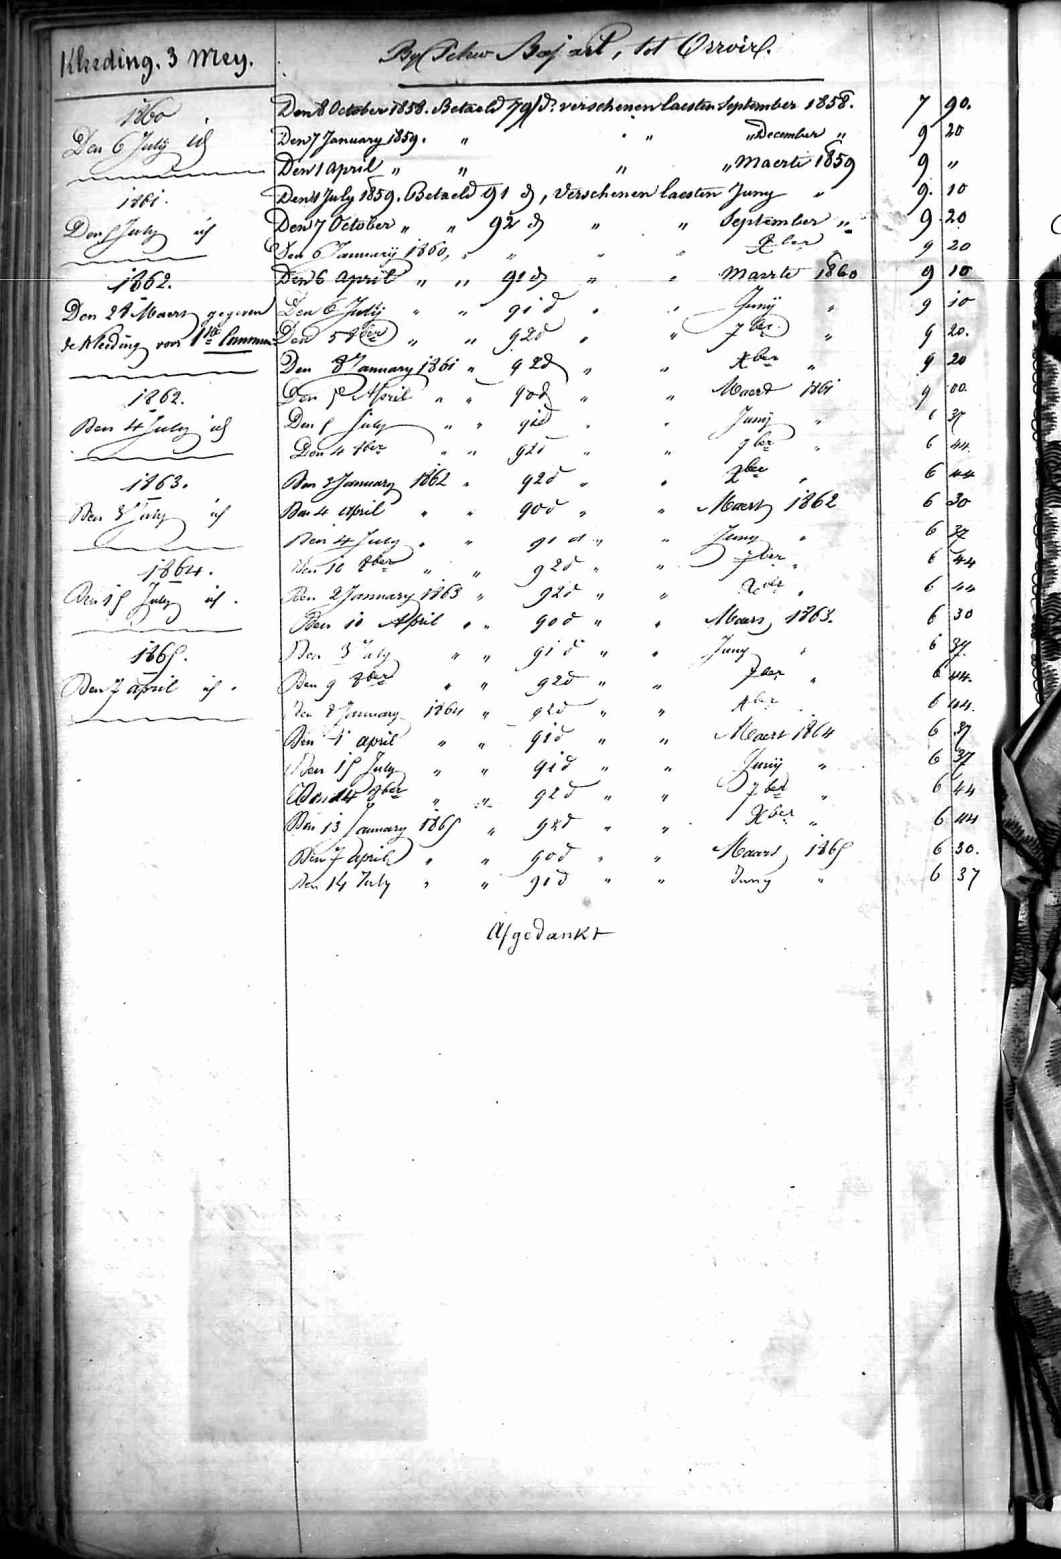 Kleeding. 3 Mey.
1860
Den 6 July id
1861.
Den 5 July id
1862.
Den 28 Maers gegeven
de kleeding van
1862.
Den 4 July id
1863.
Den 3 July id
1864.
Den 15 July id.
1865.
Den 7 april id.
By tot
Den 8 October 1858. Betaeld 79 d. verschenen laesten September 1858. 7 90.
Den 7 January 1859. " " " December " 9 20
Den 1 April " " " " Maerte 1859 9 "
Den 1 July 1859. Betaeld 91 d, verschenen laesten Juny " 9. 10
Den 7 October " " 92 d " " September " 9. 20
Den 6 January 1860, " " " " Xber 9 20
Den 6 April " " 91 d " " Maerte 1860 9 10
Den 6 July " " 91 d " " Junij " 9 10
Den 5 8ber " " 92 d " " 7ber " 9 20.
Den 8 January 1861 " 92 d " " Xber " 9 20
Den 5 April " " 90 d " " Maert 1861 9 00
Den 5 July " " 91 d " " Junij " 6 37
Den 4 8ber " " 92 d " " 7ber " 6 44
Den 3 January 1862 " 92 d " " Xber " 6 44
Den 4 april " " 90 d " " Maert 1862 6 30
Den 4 July " " 91 d " " Juny " 6 37
Den 10 8ber " " 92 d " " 7ber " 6 44
Den 2 January 1863 " 92 d " " Xber 6 44
Den 10 April " " 90 d " " Maars 1863. 6 30
Den 3 July " " 91 d " " Juny " 6 37
Den 9 8ber " " 92 d " " 7ber " 6 44
Den 8 January 1864 " 92 d " " Xber 6 44
Den 1 april " " 91 d " " Maert 1864 6 37
Den 15 July " " 91 d " " Junij " 6 37
Den 14 8ber " " 92 d " " 7ber " 6 44
Den 13 January 1865 " 92 d " " Xber " 6 44
Den 7 april " " 90 d " " Maars 1865 6 30.
Den 14 July " " 91 d " " Juny " 6 37
Afgedankt